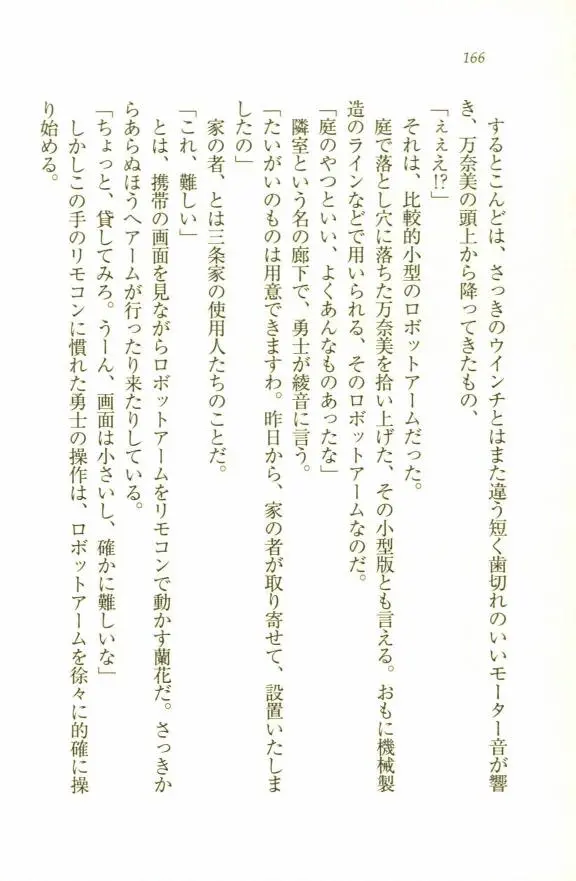 166
するとこんどは、さっきのウインチとはまた違う短く歯切れのいいモーター音が響
き、万奈美の頭上から降ってきたもの、
「ぇええ!?」
それは、比較的小型のロボットアームだった。
庭で落とし穴に落ちた万奈美を拾い上げた、その小型版とも言える。おもに機械製
造のラインなどで用いられる、そのロボットアームなのだ。
「庭のやつといい、よくあんなものあったな」
隣室という名の廊下で、勇士が綾音に言う。
「たいがいのものは用意できますわ。昨日から、家の者が取り寄せて、設置いたしま
したの」
家の者、とは三条家の使用人たちのことだ。
「これ、難しい」
とは、携帯の画面を見ながらロボットアームをリモコンで動かす蘭花だ。さっきか
らあらぬほうへアームが行ったり来たりしている。
「ちょっと、貸してみろ。うーん、画面は小さいし、確かに難しいな」
しかしこの手のリモコンに慣れた勇士の操作は、ロボットアームを徐々に的確に操
り始める。